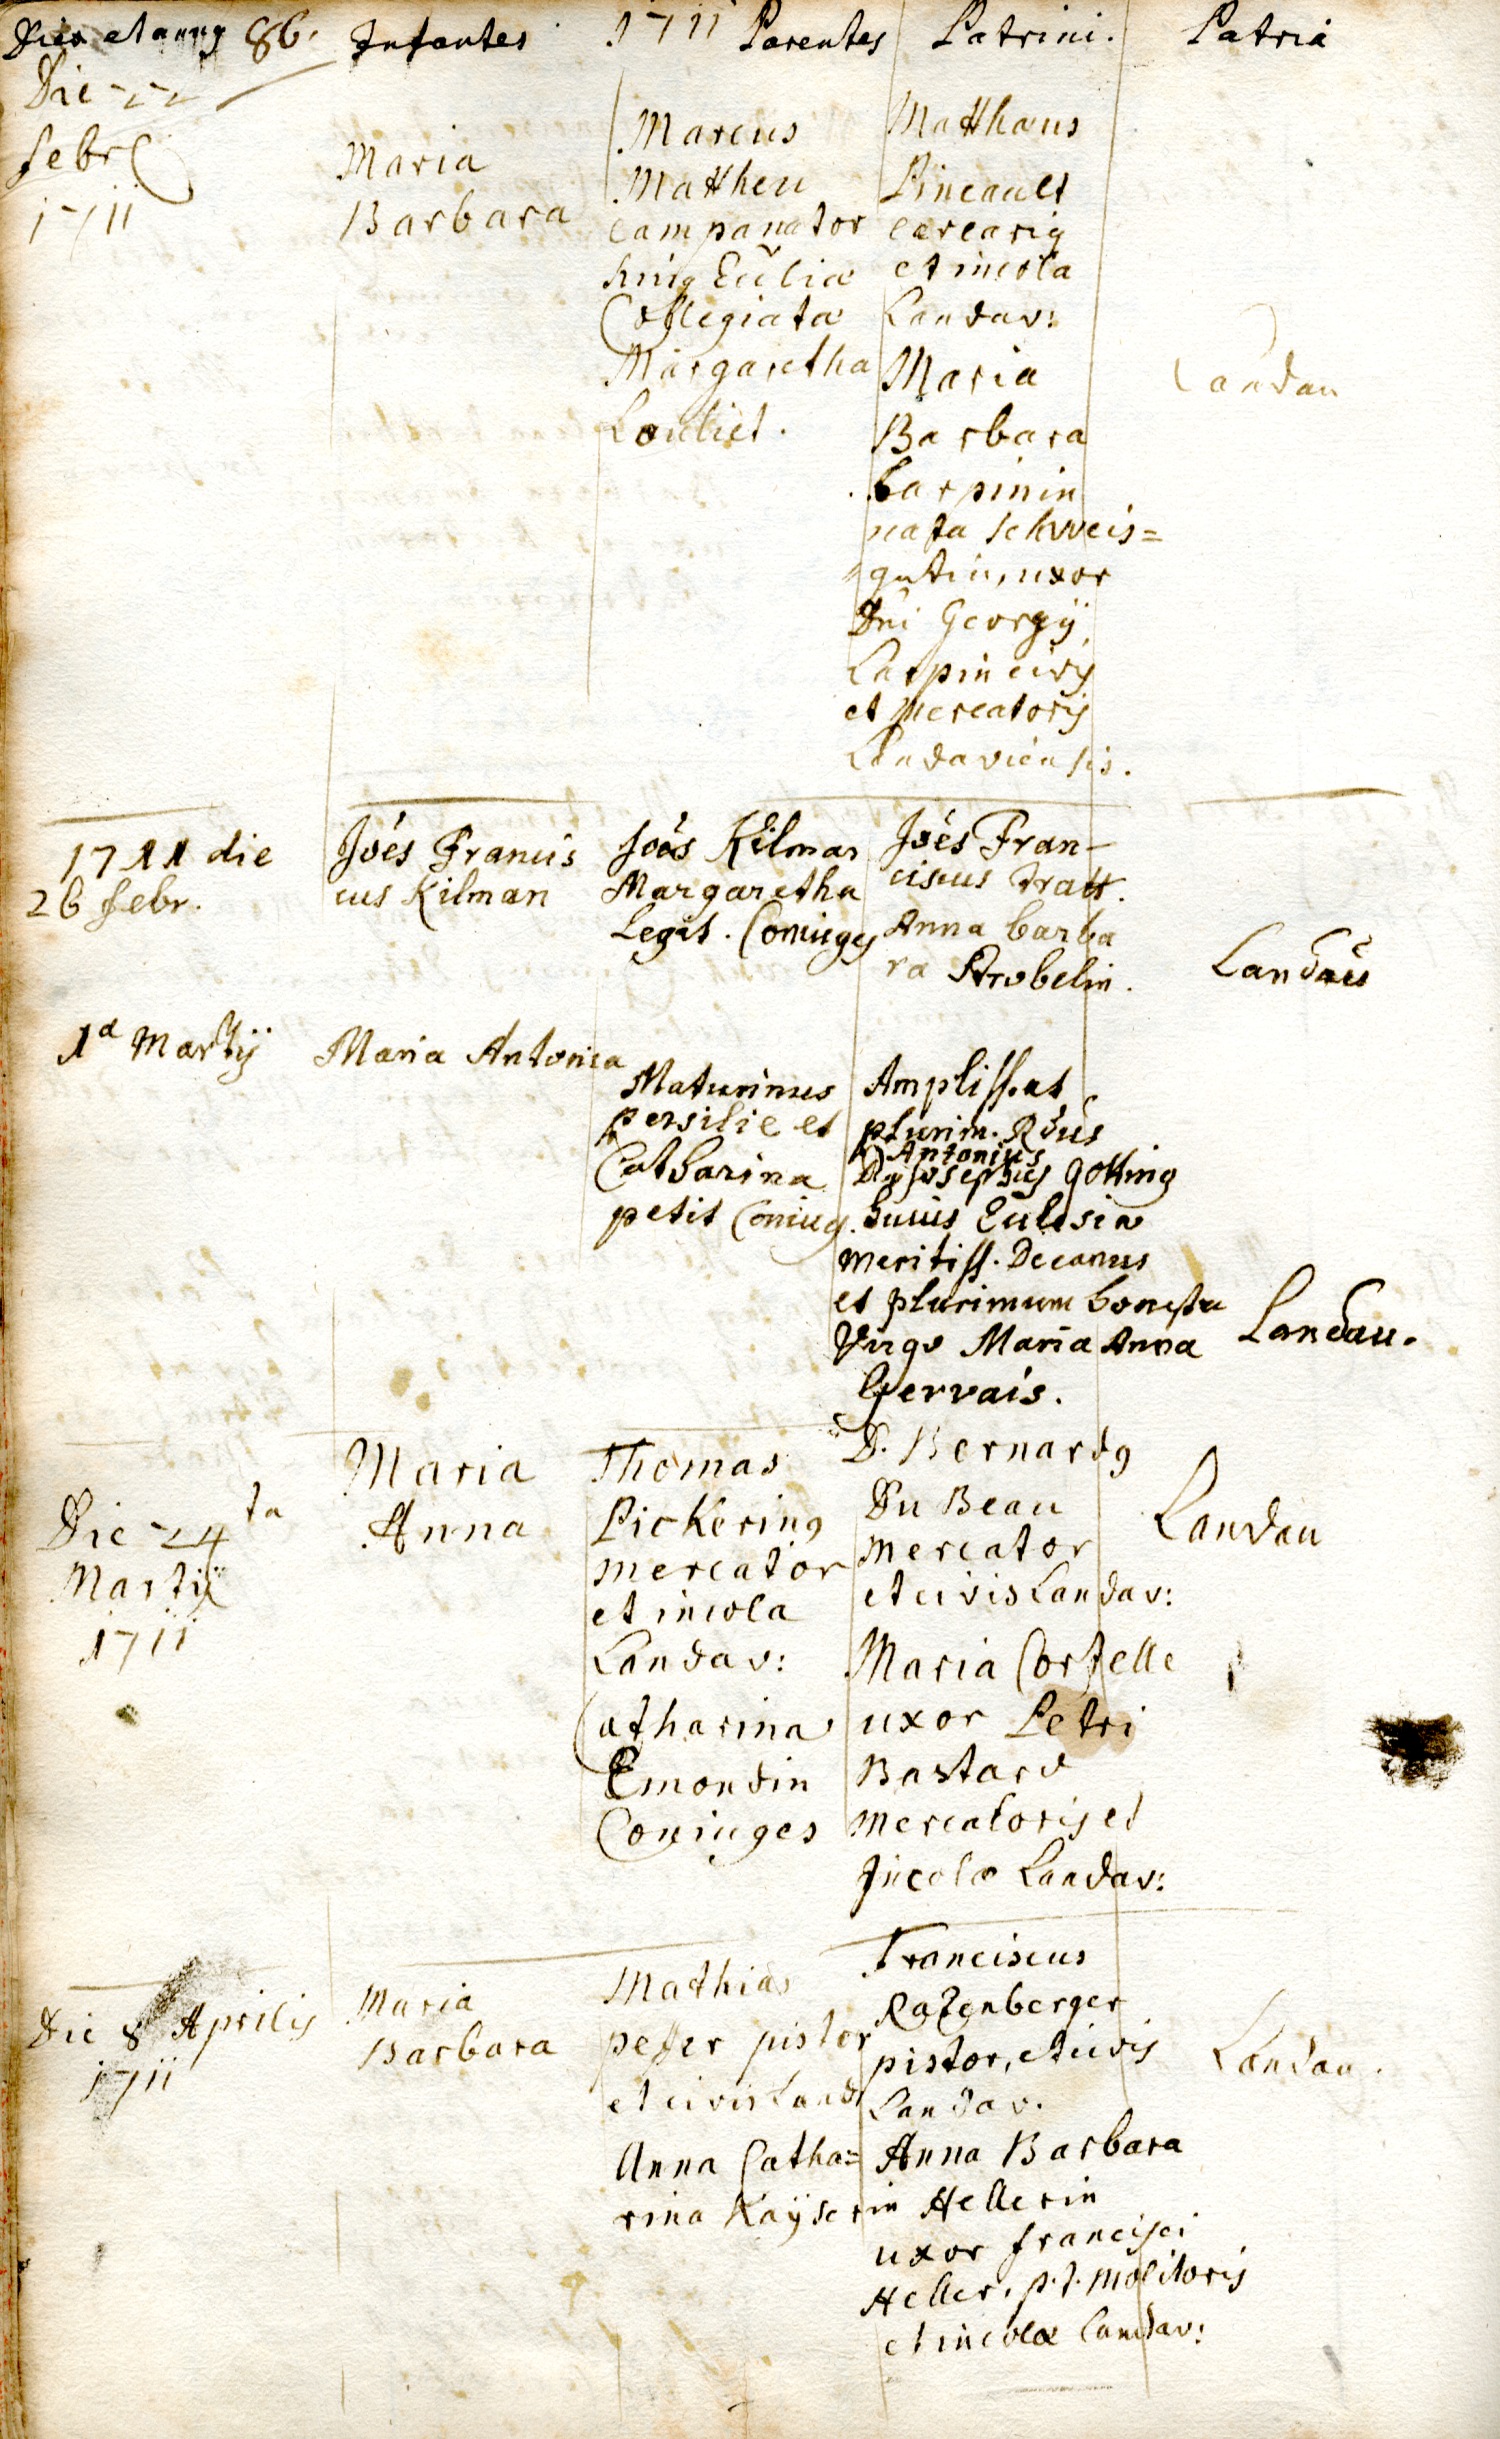 Dies et annus 86. Infantes 1711 Parentes Patrini. Patria
Die 22
febr
1711
Maria
Barbara
Marcus
Mattheu
campanator
huig Eccliæ
Collegiatæ
Margaretha
Louliet.
Matthæus
Pineault
et incola
Landav:
Maria
Barbara
Larpinin
nata Schweis=
gutin, uxor
Dni Georgij
Larpin civis
et Mercatoris
Landaviensis.
Landau
1711 die
26 febr.
Joés Francis
cus Kilman
Joés Kilman
Margaretha
Legit. Coniuges
Joés Fran-
ciscus Tratt.
Anna barba
ra Strobelin.
Landau
1ª Martij
Maria Antonia
Maturinus
persilie et
Catharina
petit Coniug.
Ampliss. at
plurim. Rdus
D Antonius
Josephus Gotting
huius Eclesiæ
meritiss. Decanus
et plurimum honesta
Virgo Maria Anna
Gervais.
Landau.
Die 24ta
Martij
1711
Maria
Anna
Thomas
Pickering
mercator
et incola
Landav:
Catharina
Emondin
Coniuges
D. Bernardg
Du Beau
mercator
et civis Landav:
Maria Cortelle
uxor Petri
Bastard
mercatoris et
Incolæ Landav:
Landau
Die 8 Aprilis
1711
Maria
Barbara
Mathias
peffer pistor
et civis Land
Anna Catha=
rina Kaÿserin
Franciscus
Razenberger
pistor, et civis
Landav.
Anna Barbara
Hellerin
uxor francisci
Heller, p.t. molitoris
et incolæ Landav:
Landau.